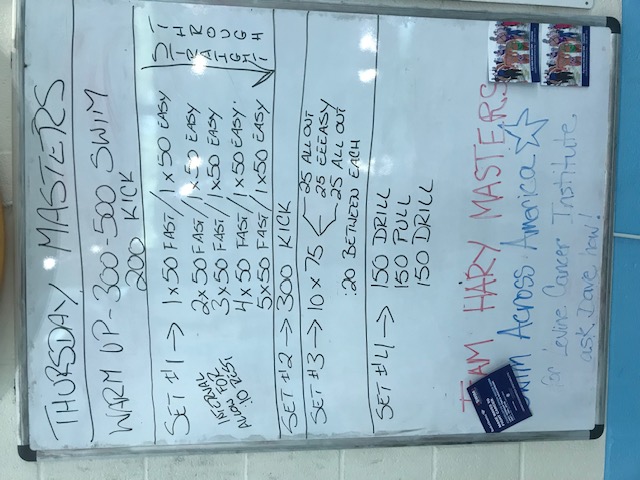 THURSDAY MASTERS
WARM UP - 300-500 SWIM
200 KICK
SET #1 → 1x50 FAST/1x50 EASY
2x50 FAST/1x50 EASY
3x50 FAST/1x50 EASY
4x50 FAST/1x50 EASY.
5x50 FAST/1x50 EASY
INTERVAL
ALLOW FOR
:10 REST
STRAIGHT
THROUGH
SET #2 → 300 KICK
SET #3 → 10 x 75
25 ALL OUT
25 EEEASY
25 ALL OUT
:20 BETWEEN EACH
SET #4 → 150 DRILL
150 PULL
150 DRILL
TEAM HARY MASTERS
Swim Across America
for Levine Cancer Institute
ask Dave how!
MAKE WAVES TO
FIGHT CANCER